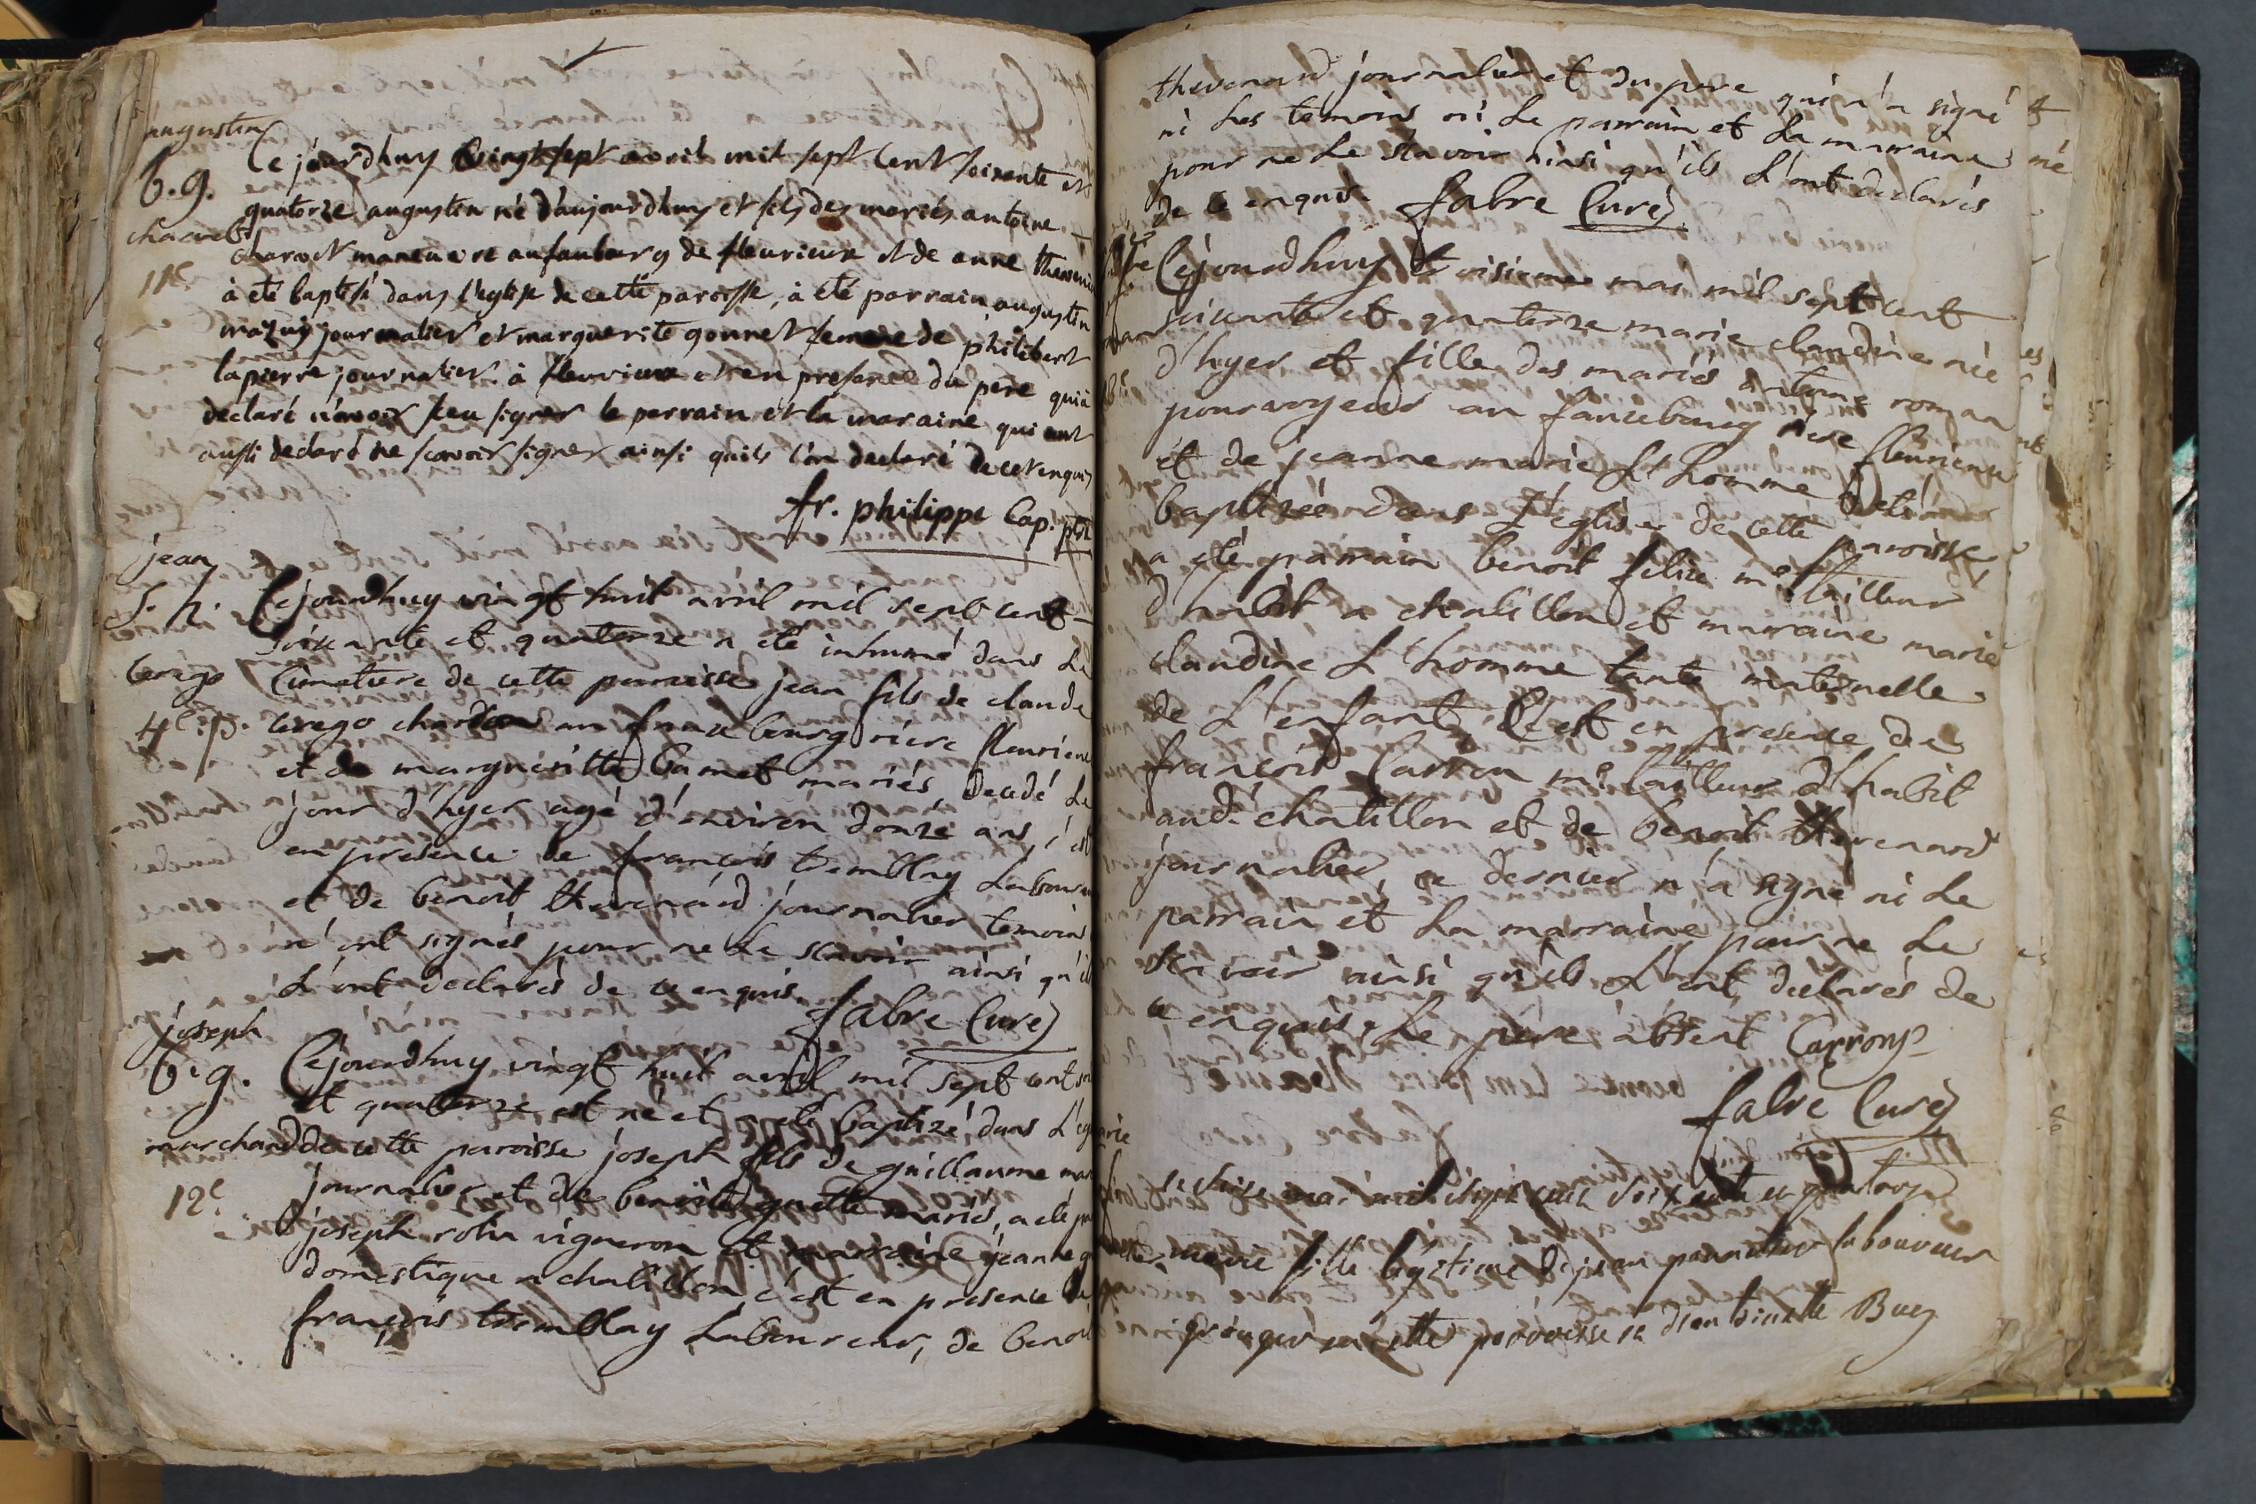 augustin
b. g.
charvet
11e.
Ce jourdhuy vingt sept avril mil sept cent soixante et
quatorze, augustin né d'aujourdhuy et fils des mariés antoine
charvet maneuvre au faubourg de fleurieux et de anne
à eté baptisé dans l'eglise de cette paroisse, à eté parrain augustin
mazuy journalier et marguerite gonnet femme de philibert
lapierre journalier à fleurieux et en presence du pere qui a
declaré n'avoir sceu signer le parrain et la maraine qui ont
aussi declaré ne scavoir signer ainsi quils l'on declaré de ce enquis
fr. philippe Cap. ptre
jean
s. n.
cerego
4e. p.
Cejourdhuy vingt huit avril mil sept cent
soixante et quatorze a eté inhumé dans le
Cimetiere de cette paroisse jean fils de claude
cerego au fauxbourg riere fleurieux
et de margueritte Gamet mariés, decedé le
jour d'hyer agé d'environ douze ans, c'est
en presence de françois tremblay Laboureur
et de benoit thevenard journalier temoins
n'ont signés pour ne le scavoir ainsi qu'ils
L'ont declarés de ce enquis fabre Curé
joseph
b. g.
marchand
12e.
Cejourdhuy vingt huit avril mil sept cent
et quatorze est né et a eté baptizé dans L'eg
de cette paroisse joseph fils de guillaume mar
journalier et de benoite guette mariés, a eté pa
joseph rolin vigneron et marraine jeanne
domestique a chatillon c'est en presence de
françois tremblay Laboureur, de benoit
thevenard journalier et du pere qui n'a signé
ni les temoins ni Le parrain et La marraine
pour ne Le scavoir ainsi qu'ils L'ont declarés
de ce enquis fabre Curé
Cejourdhuy troisieme may mil sept cent
soixante et quatorze marie claudine née
d'hyer et fille des mariés antoine roman
pourvoyeur au fauxbourg riere fleurieux
et de jeanne marie L'homme a eté
baptizée dans L'eglise de cette paroisse,
a eté parrain benoit felix me tailleur
d'habit a chatillon et marraine marie
claudine L'homme tante maternelle
de L'enfant, C'est en presence de
françois Carron me tailleur d'habit
aud. chatillon et de benoit thevenard
journalier, ce dernier n'a signé ni Le
parrain et La marraine pour ne Le
scavoir ainsi qu'ils L'ont declarés de
ce enquis, Le pere absent Carron
fabre Curé
may mil sept cent soixante et quatorze
marie fille legitime de jean laboureur
granger en cette parroisse et Buy